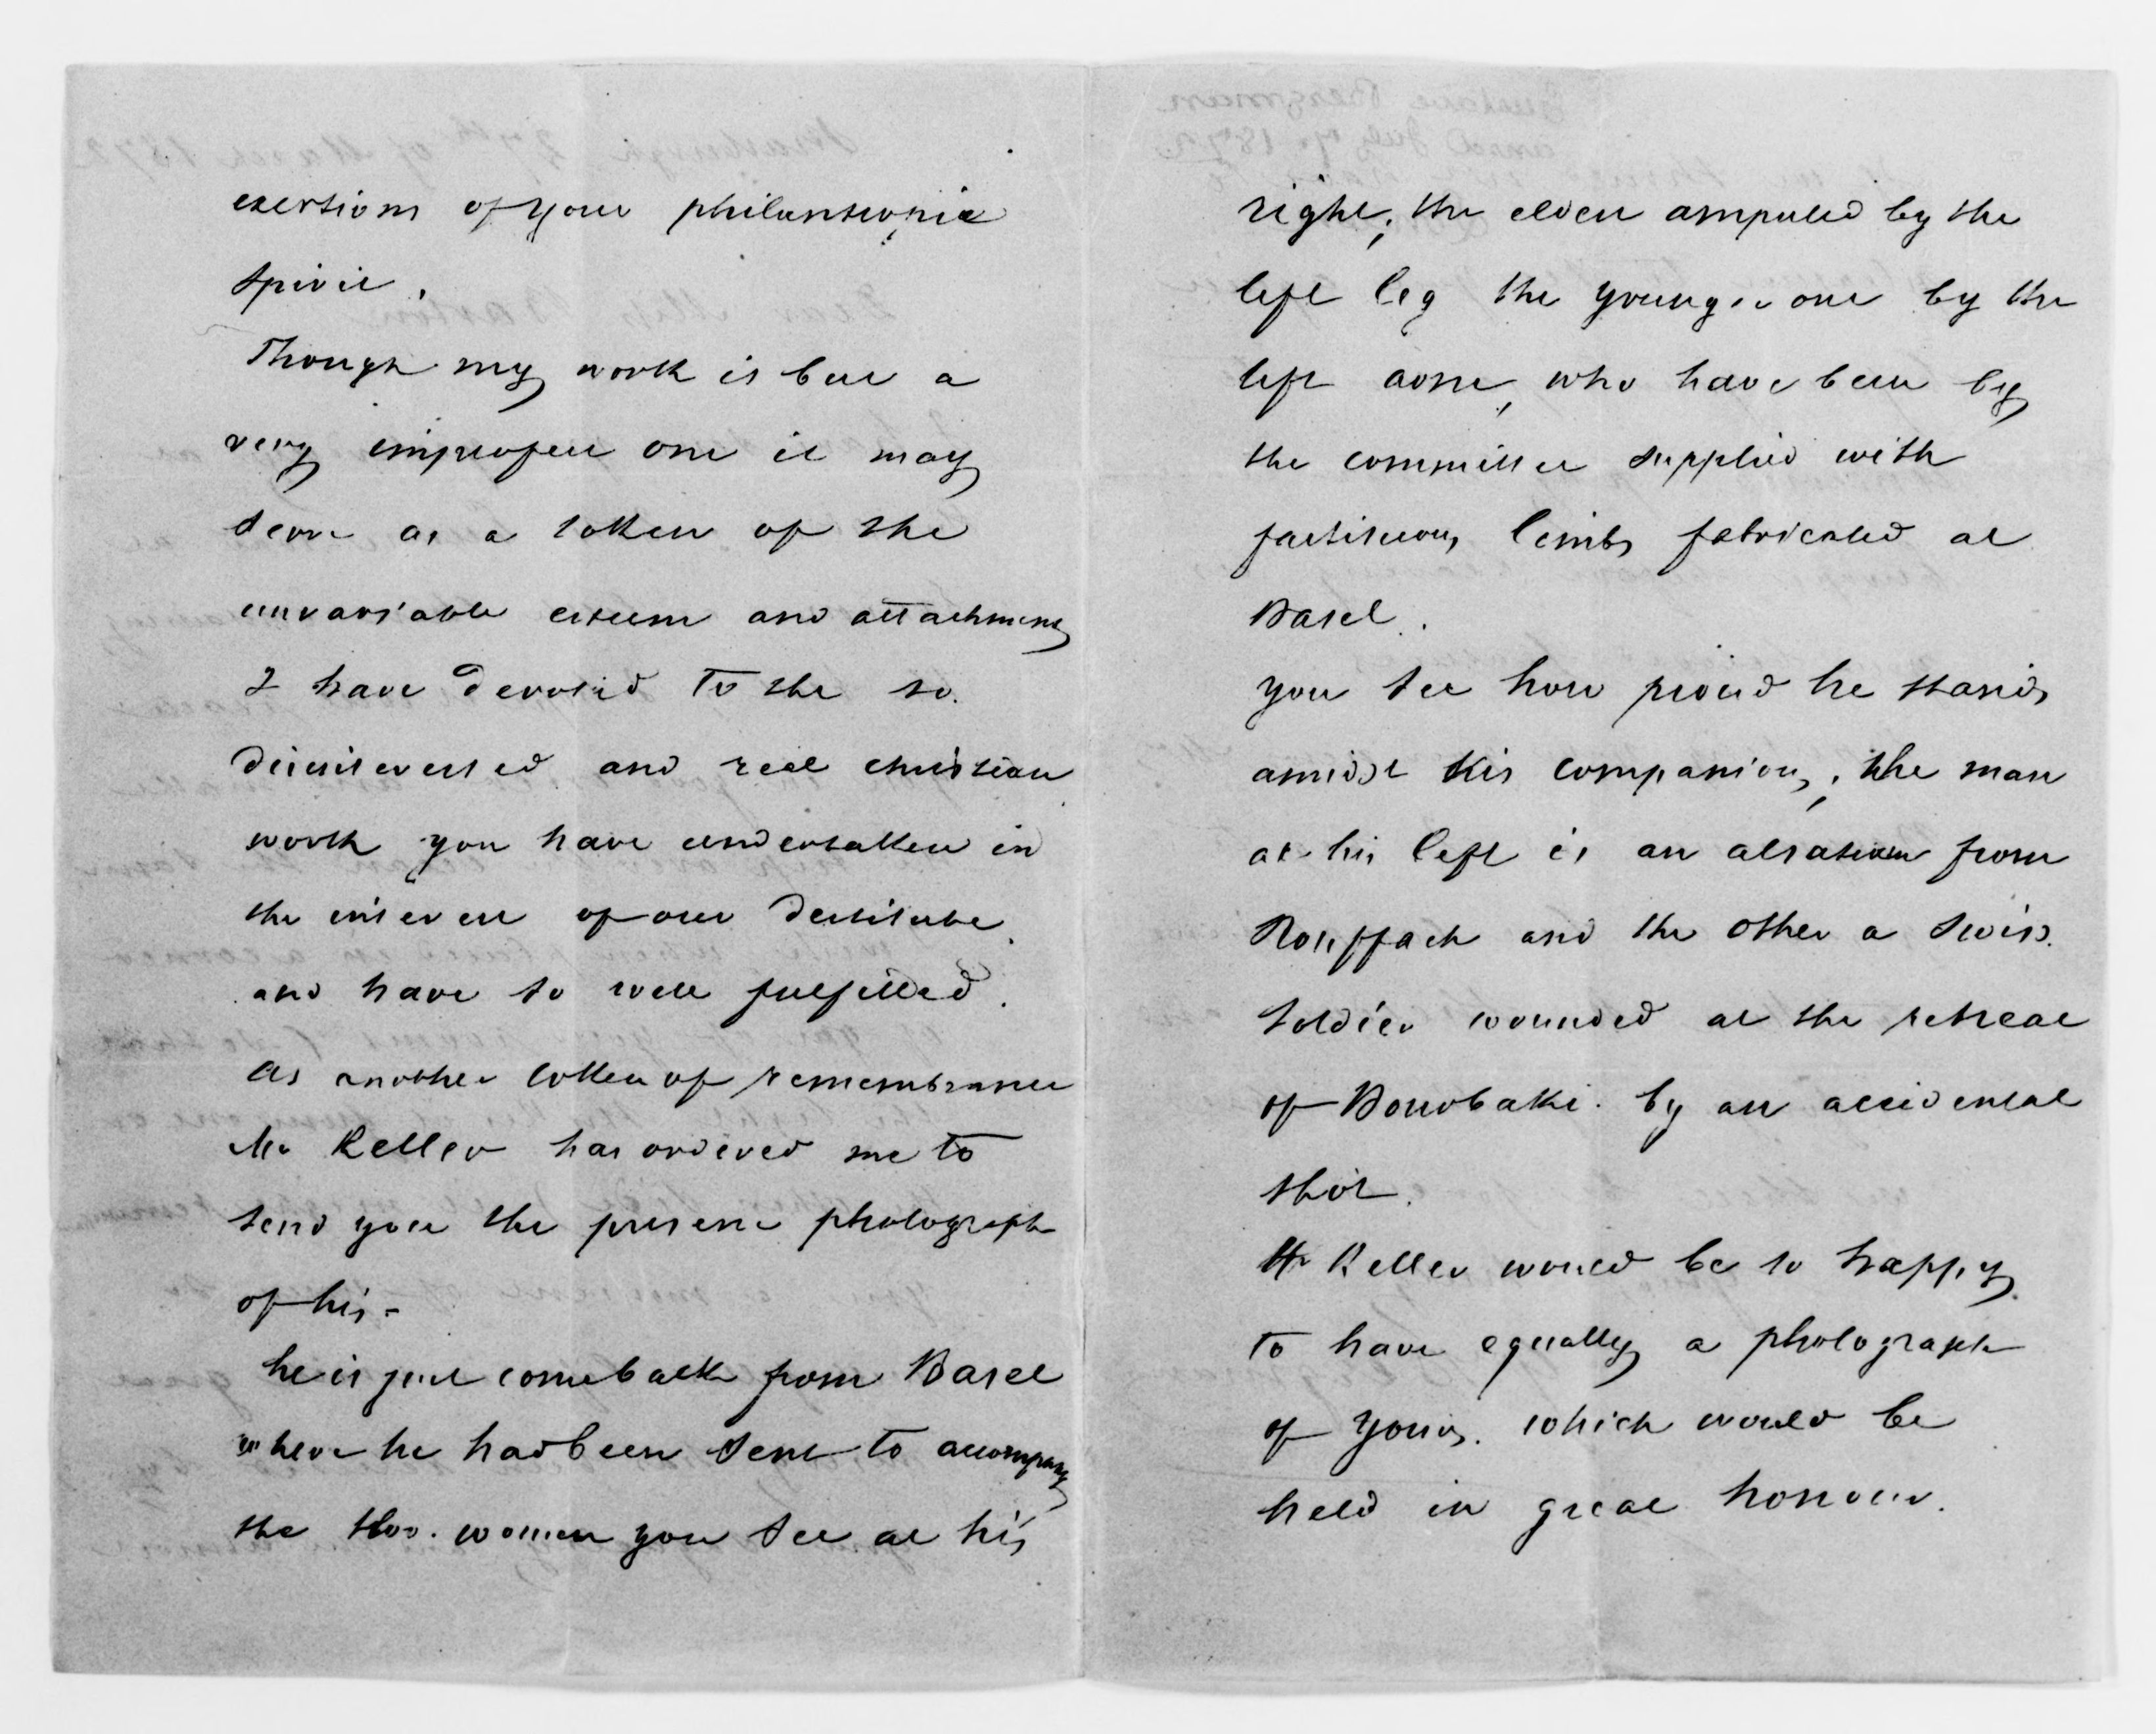 exertions of your philantropic
spirit.
Though my work is but a
very imperfect one it may
serve as a token of the
unvariable esteem and attachment
I have devoted to the so
disinterested and real christian
work you have undertaken in
the interest of our destitute
and have so well fulfilled.
As another token of remembrance
Mr Keller has ordered me to
send you the present photograph
of his -
he is just come back from Basel
where he had been sent to accompany
the two women you see at his
right; the elder amputed by the
left leg the younger one by the
left arm, who have been by
the committee supplied with
factiteous limbs fabricated at
Basel.
you see how proud he stands
amidst his companions; the man
at his left is an alsatian from
Rouffach and the other a Swiss
soldier wounded at the retreat
of Bourbaki by an accidental
shot.
Mr Keller would be so happy
to have equally a photograph
of yours. which would be
held in great honour.